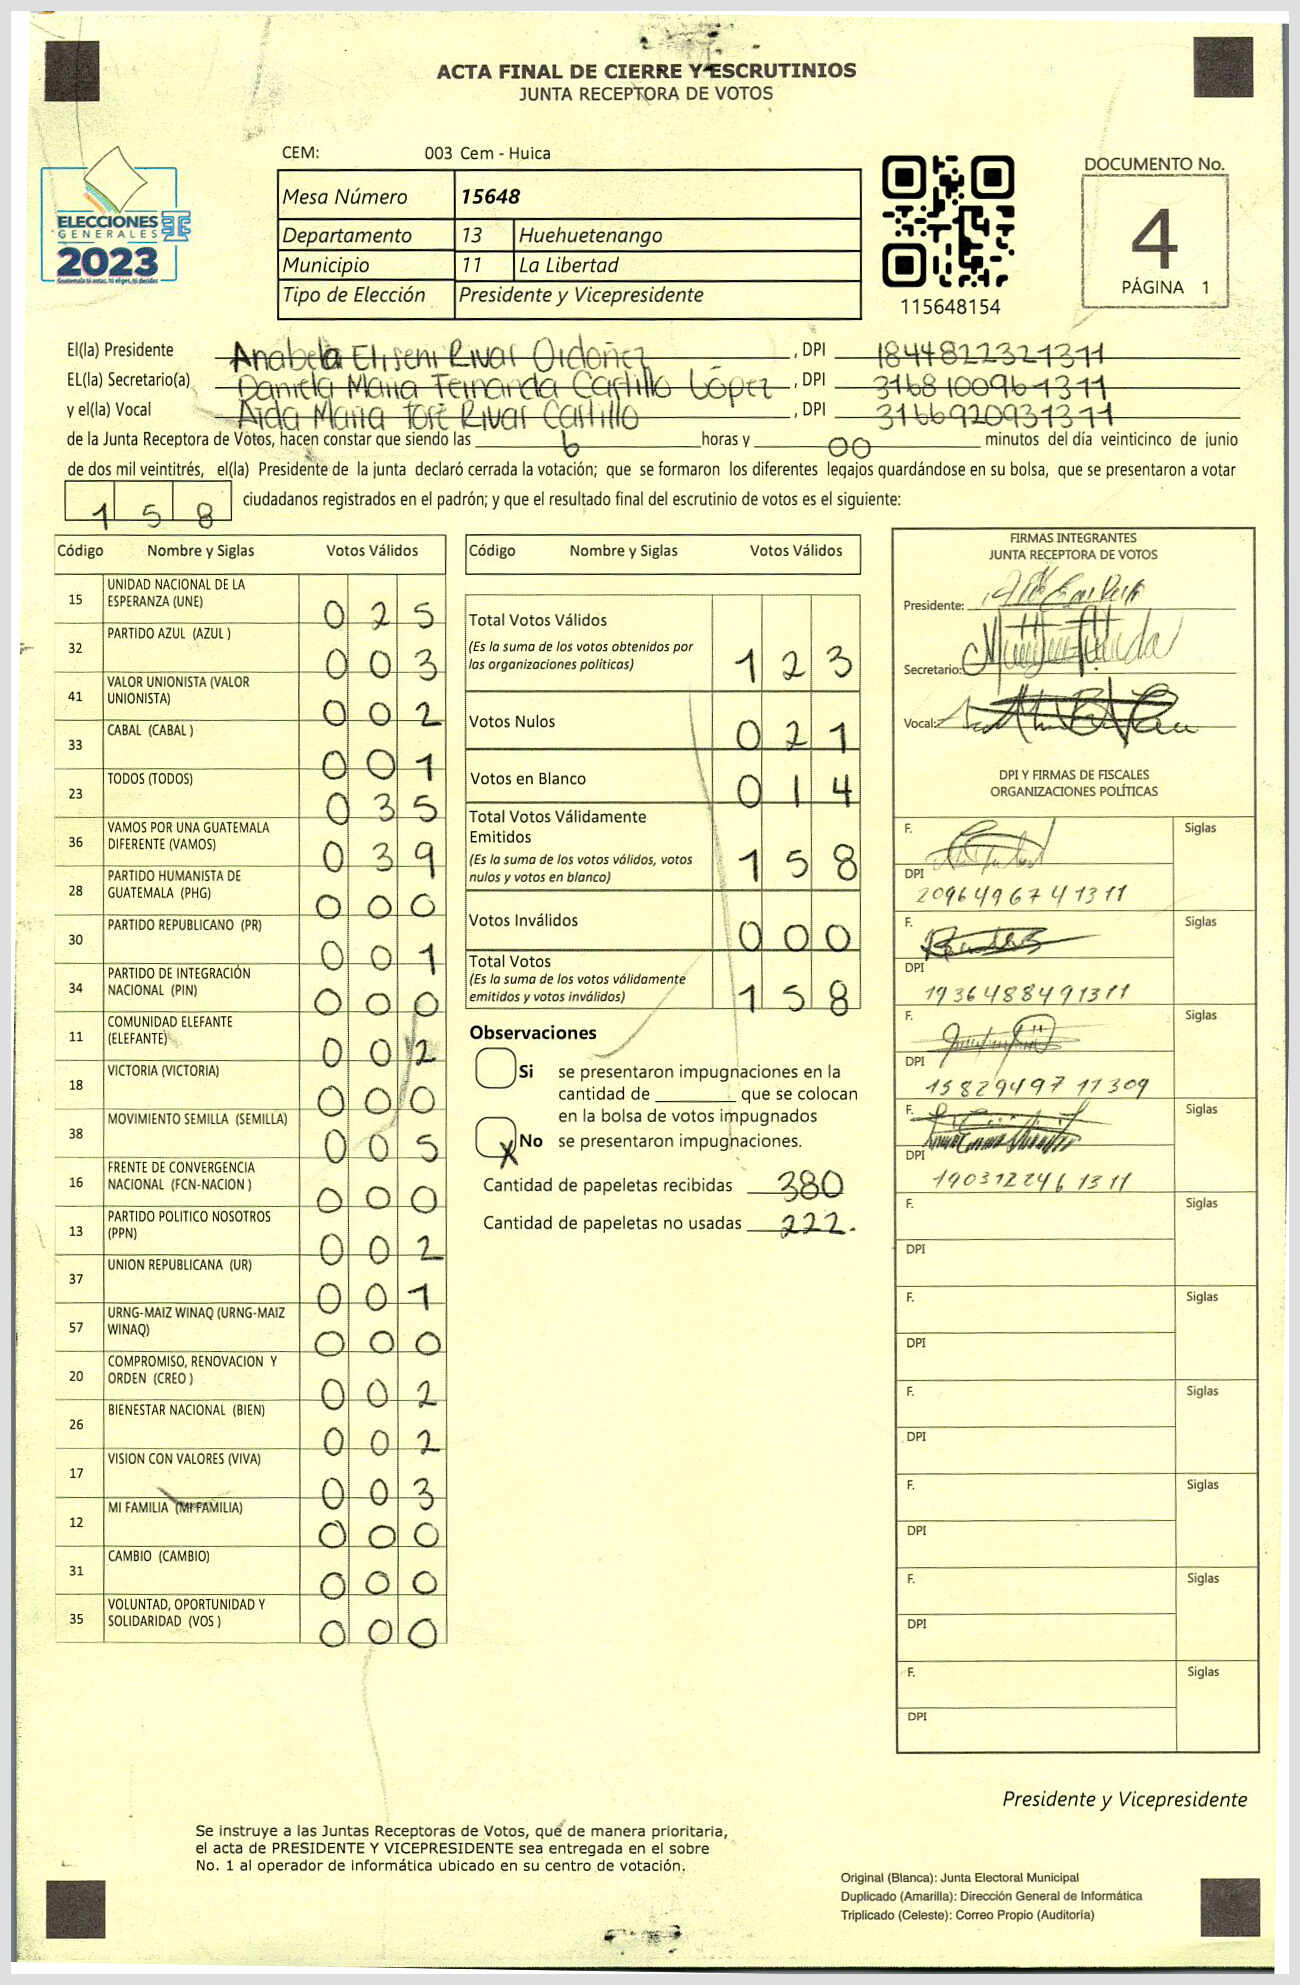 ACTA FINAL DE CIERRE Y ESCRUTINIOS
JUNTA RECEPTORA DE VOTOS
CEM: 003 Cem - Huica
DOCUMENTO No.
4
PÁGINA 1
ELECCIONES
GENERALES
2023
Mesa Número 15648
Departamento 13 Huehuetenango
Municipio 11 La Libertad
Tipo de Elección Presidente y Vicepresidente
115648154
El(la) Presidente Anabela Eliseni Rivas Ordoñez, DPI 1844822321311
EL(la) Secretario(a) Daniela Maria Fernanda Castillo López, DPI 3168100961311
y el(la) Vocal Aida Maria José Rivas Castillo, DPI 3166920931311
de la Junta Receptora de Votos, hacen constar que siendo las 6 horas y 00 minutos del día veinticinco de junio
de dos mil veintitrés, el(la) Presidente de la junta declaró cerrada la votación; que se formaron los diferentes legajos guardándose en su bolsa, que se presentaron a votar
158 ciudadanos registrados en el padrón; y que el resultado final del escrutinio de votos es el siguiente:
Código Nombre y Siglas Votos Válidos
15 UNIDAD NACIONAL DE LA
ESPERANZA (UNE) 025
32 PARTIDO AZUL (AZUL ) 003
41 VALOR UNIONISTA (VALOR
UNIONISTA) 002
33 CABAL (CABAL ) 001
23 TODOS (TODOS) 035
36 VAMOS POR UNA GUATEMALA
DIFERENTE (VAMOS) 039
28 PARTIDO HUMANISTA DE
GUATEMALA (PHG) 000
30 PARTIDO REPUBLICANO (PR) 001
34 PARTIDO DE INTEGRACIÓN
NACIONAL (PIN) 000
11 COMUNIDAD ELEFANTE
(ELEFANTE) 002
18 VICTORIA (VICTORIA) 000
38 MOVIMIENTO SEMILLA (SEMILLA) 005
16 FRENTE DE CONVERGENCIA
NACIONAL (FCN-NACION ) 000
13 PARTIDO POLITICO NOSOTROS
(PPN) 002
37 UNION REPUBLICANA (UR) 001
57 URNG-MAIZ WINAQ (URNG-MAIZ
WINAQ) 000
20 COMPROMISO, RENOVACION Y
ORDEN (CREO ) 002
26 BIENESTAR NACIONAL (BIEN) 002
17 VISION CON VALORES (VIVA) 003
12 MI FAMILIA (MI FAMILIA) 000
31 CAMBIO (CAMBIO) 000
35 VOLUNTAD, OPORTUNIDAD Y
SOLIDARIDAD (VOS ) 000
Código Nombre y Siglas Votos Válidos
Total Votos Válidos
(Es la suma de los votos obtenidos por
las organizaciones políticas) 123
Votos Nulos 021
Votos en Blanco 014
Total Votos Válidamente
Emitidos
(Es la suma de los votos válidos, votos
nulos y votos en blanco) 158
Votos Inválidos 000
Total Votos
(Es la suma de los votos válidamente
emitidos y votos inválidos) 158
Observaciones
Si se presentaron impugnaciones en la
cantidad de ________ que se colocan
en la bolsa de votos impugnados
X No se presentaron impugnaciones.
Cantidad de papeletas recibidas 380
Cantidad de papeletas no usadas 222.
FIRMAS INTEGRANTES
JUNTA RECEPTORA DE VOTOS
Presidente:
Secretario:
Vocal:
DPI Y FIRMAS DE FISCALES
ORGANIZACIONES POLÍTICAS
F. Siglas
DPI 2096496741311
F. Siglas
DPI 1936488491311
F. Siglas
DPI 1582949711309
F. Siglas
DPI 1903122461311
F. Siglas
DPI
F. Siglas
DPI
F. Siglas
DPI
F. Siglas
DPI
F. Siglas
DPI
F. Siglas
DPI
Presidente y Vicepresidente
Se instruye a las Juntas Receptoras de Votos, que de manera prioritaria,
el acta de PRESIDENTE Y VICEPRESIDENTE sea entregada en el sobre
No. 1 al operador de informática ubicado en su centro de votación.
Original (Blanca): Junta Electoral Municipal
Duplicado (Amarilla): Dirección General de Informática
Triplicado (Celeste): Correo Propio (Auditoría)